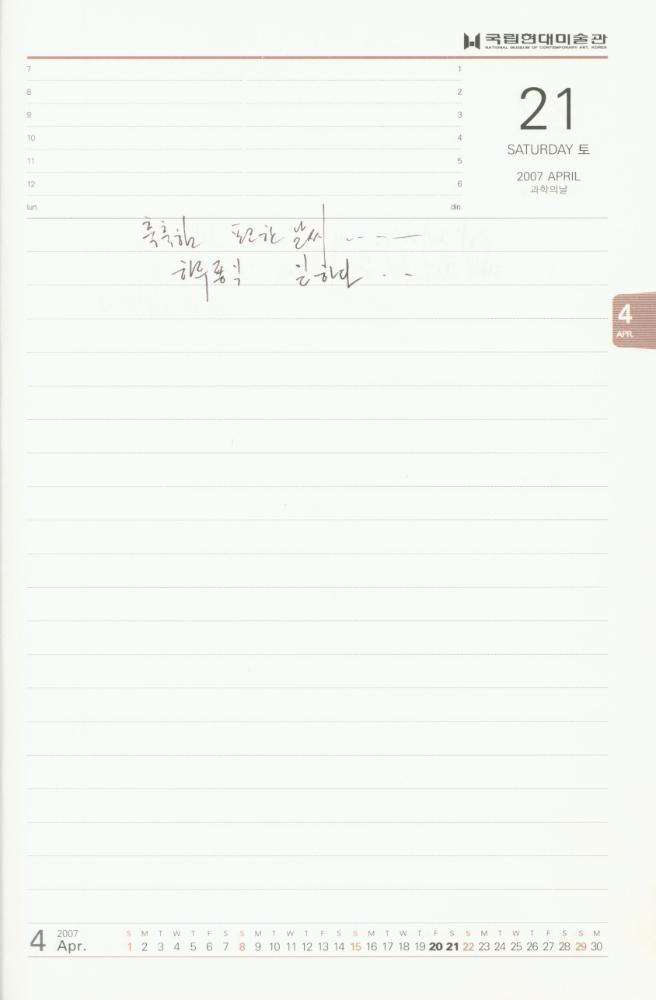 국립현대미술관
NATIONAL MUSEUM OF CONTEMPORARY ART, KOREA
7
8
9
10
11
12
lun.
1
2
3
4
5
6
din.
21
SATURDAY 토
2007 APRIL
과학의날
날씨 ----
하루종일 일하다 . -
4
APR.
4 2007 Apr.
S M T W T F S S M T W T F S S M T W T F S S M T W T F S S M
1 2 3 4 5 6 7 8 9 10 11 12 13 14 15 16 17 18 19 20 21 22 23 24 25 26 27 28 29 30